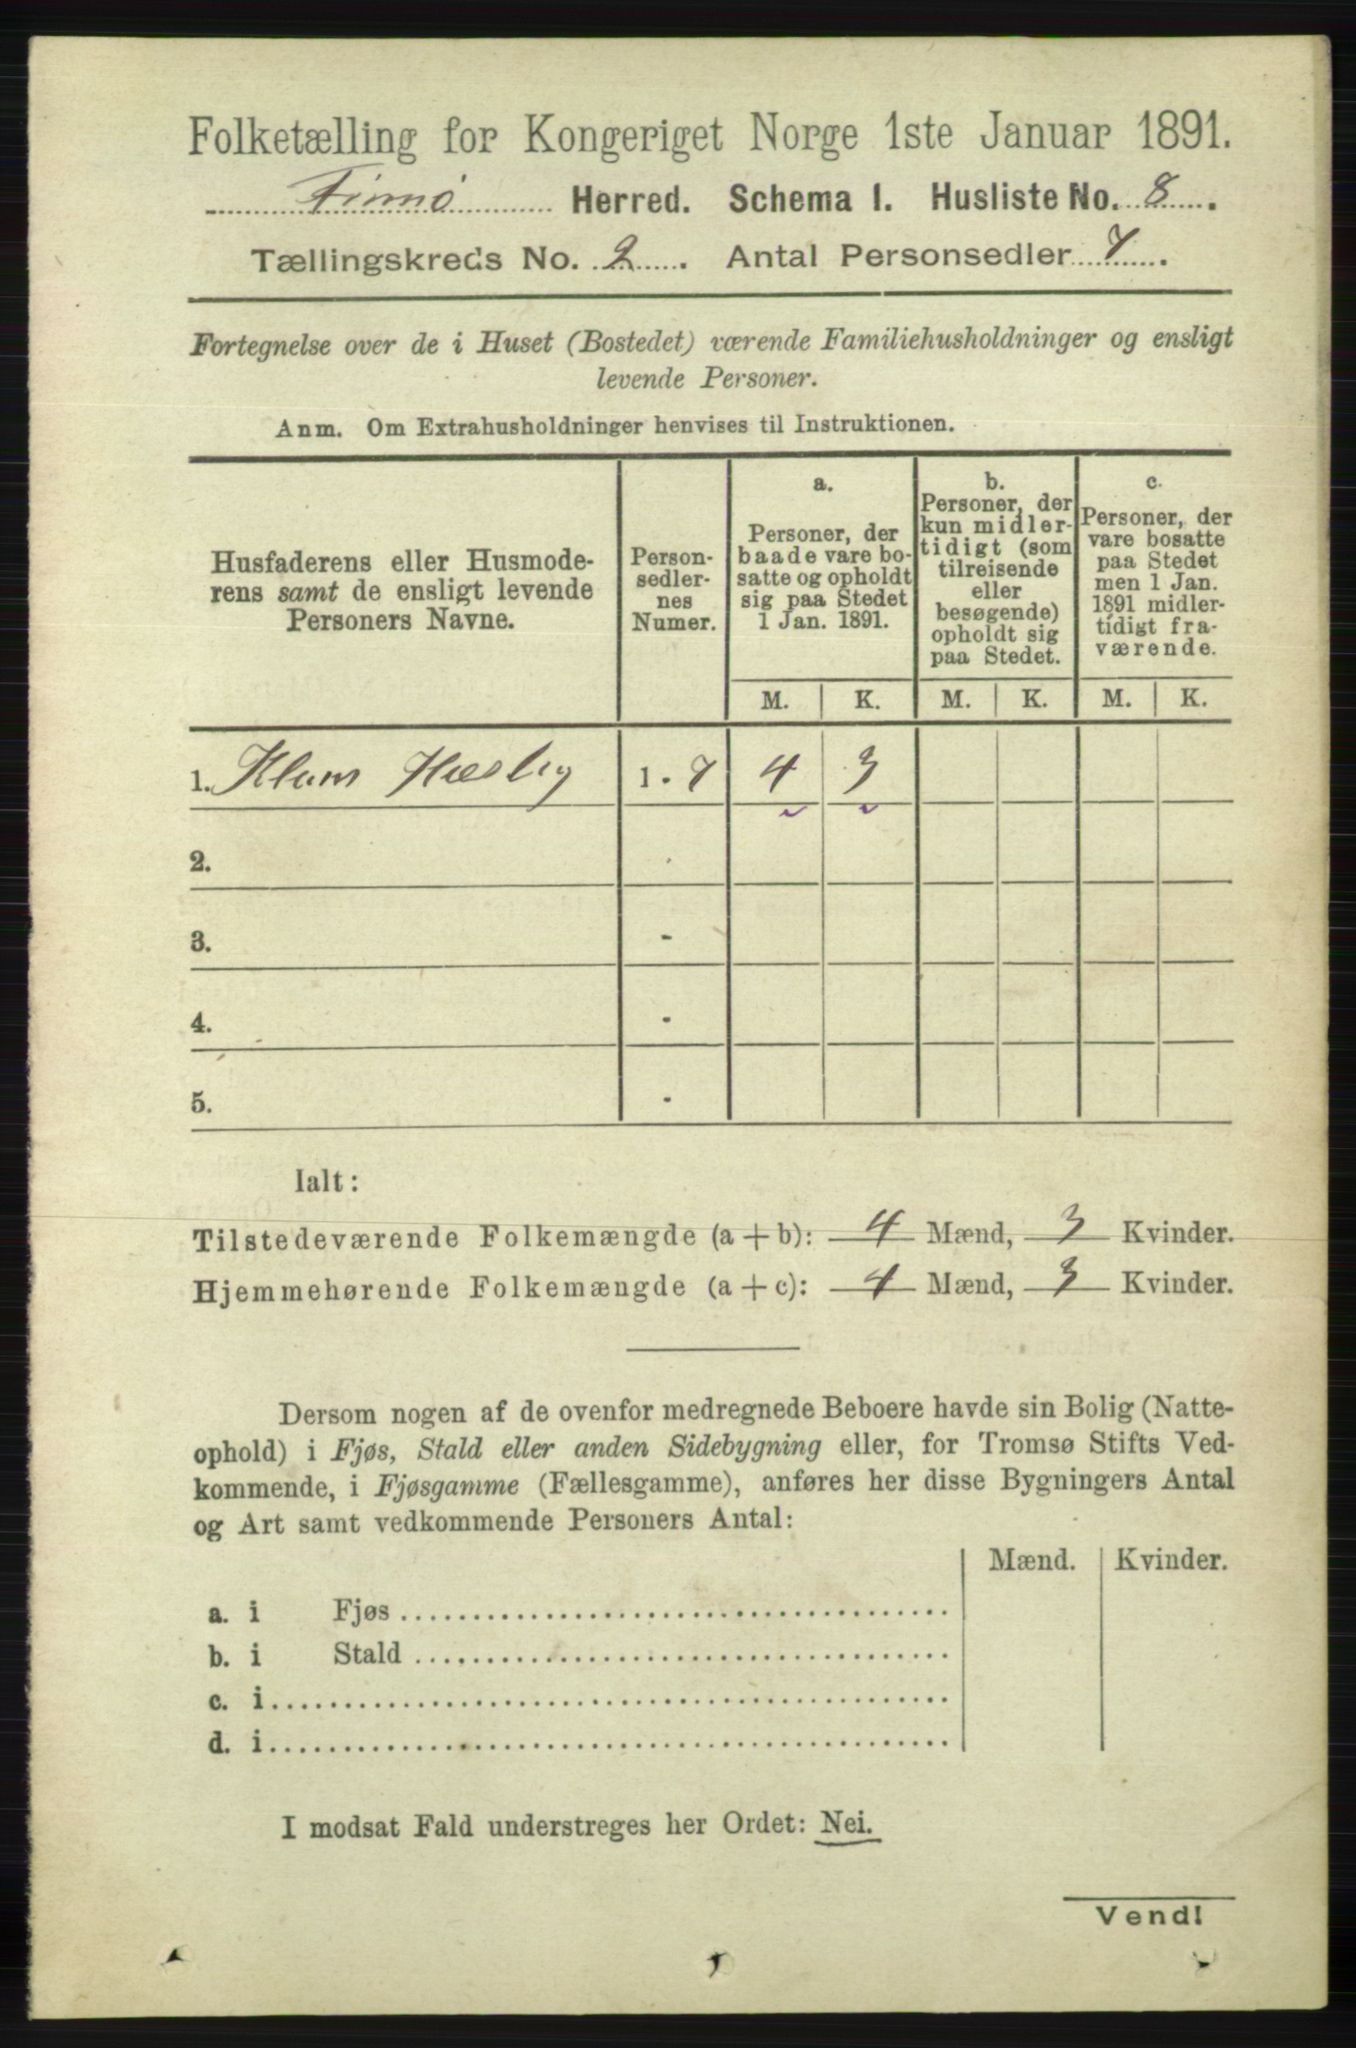 Folketælling for Kongeriget Norge 1ste Januar 1891.
Finnø Herred. Schema 1. Husliste No. 8.
Tællingskreds No. 2. Antal Personsedler 7.
Fortegnelse over de i Huset (Bostedet) værende Familiehusholdninger og ensligt
levende Personer.
Anm. Om Extrahusholdninger henvises til Instruktionen.
Husfaderens eller Husmode-
rens samt de ensligt levende
Personers Navne.
Person-
sedler-
nes
Numer.
a.
Personer, der
baade vare bo-
satte og opholdt
sig paa Stedet
1 Jan. 1891.
b.
Personer, der
kun midler-
tidigt (som
tilreisende
eller
besøgende)
opholdt sig
paa Stedet.
c.
Personer, der
vare bosatte
paa Stedet
men 1 Jan.
1891 midler-
tidigt fra-
værende.
M. K. M. K. M. K.
1. 1 - 7 4 3
2.
3. -
4. -
5. -
Ialt:
Tilstedeværende Folkemængde (a + b): 4 Mænd, 3 Kvinder.
Hjemmehørende Folkemængde (a + c): 4 Mænd, 3 Kvinder.
Dersom nogen af de ovenfor medregnede Beboere havde sin Bolig (Natte-
ophold) i Fjøs, Stald eller anden Sidebygning eller, for Tromsø Stifts Ved-
kommende, i Fjøsgamme (Fællesgamme), anføres her disse Bygningers Antal
og Art samt vedkommende Personers Antal:
Mænd. Kvinder.
a. i Fjøs
b. i Stald
c. i
d. i
I modsat Fald understreges her Ordet: Nei.
Vend!